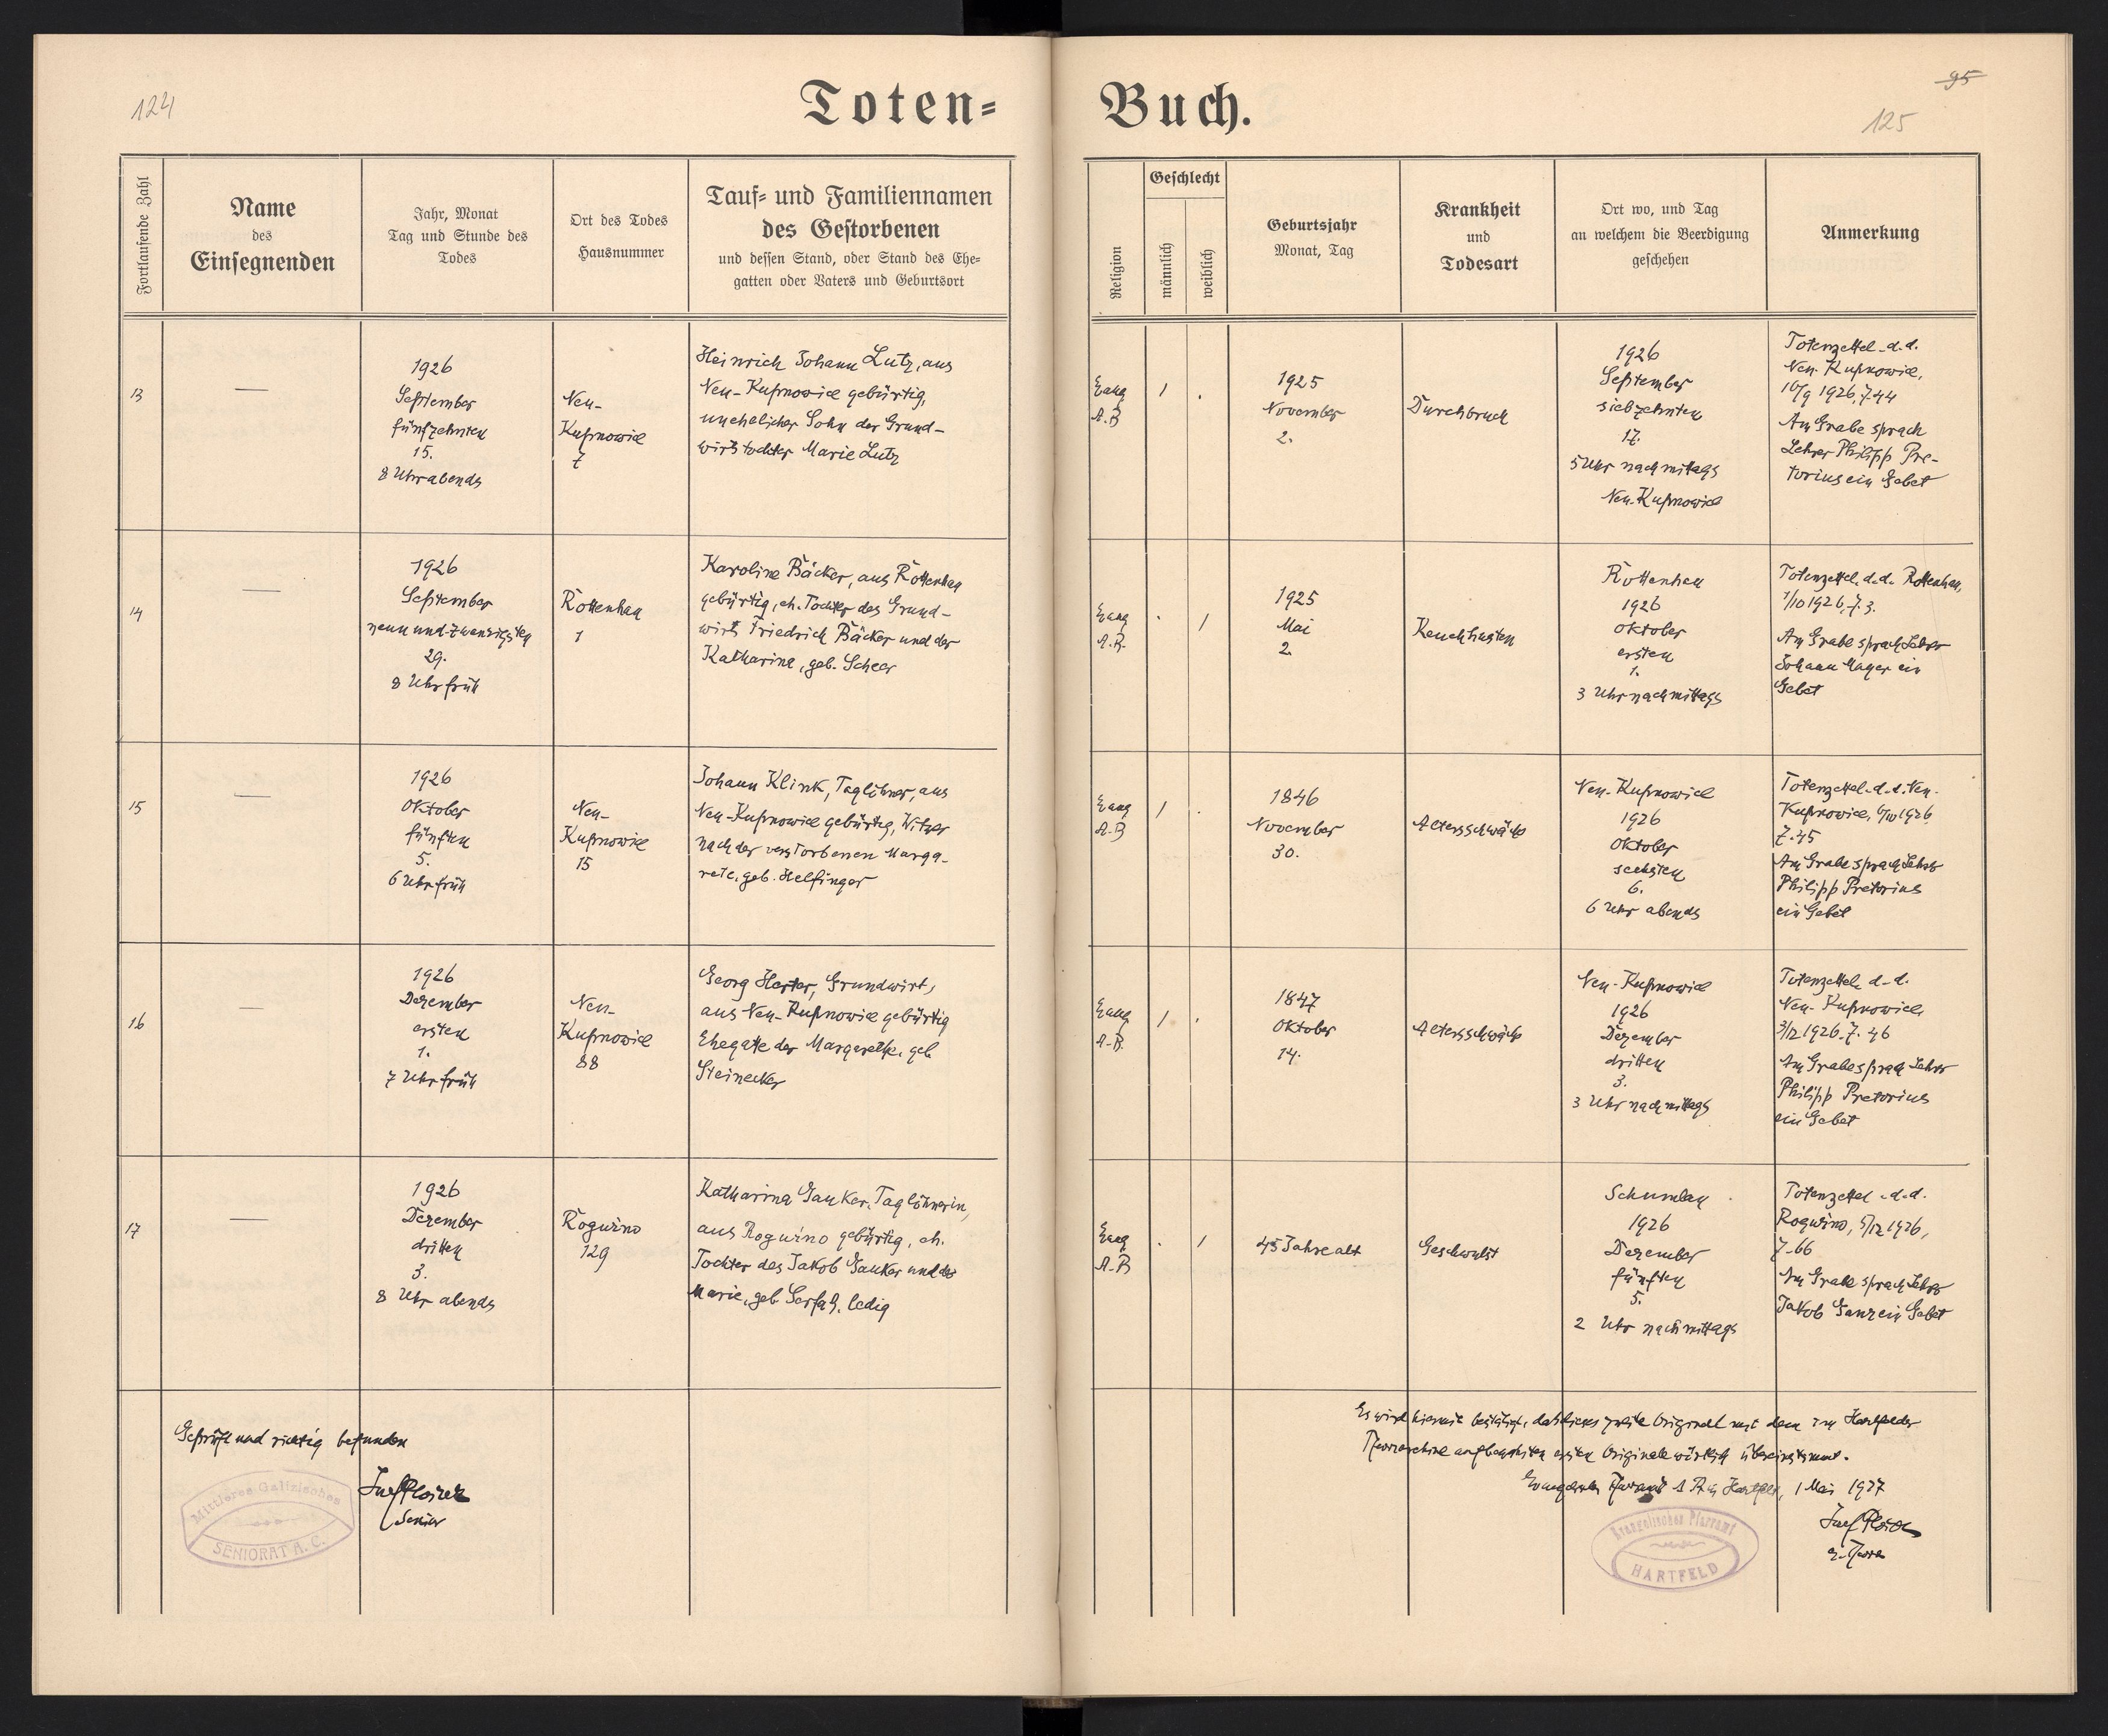 124
Toten=
Buch.
95
125
Fortlaufende Zahl
Name
des
Einsegnenden
Jahr, Monat
Tag und Stunde des
Todes
Ort des Todes
Hausnummer
Tauf= und Familiennamen
des Gestorbenen
und dessen Stand, oder Stand des Ehe=
gatten oder Vaters und Geburtsort
Religion
Geschlecht
männlich
weiblich
Geburtsjahr
Monat, Tag
Krankheit
und
Todesart
Ort wo, und Tag
an welchem die Beerdigung
geschehen
Anmerkung
13
—
1926
September
fünfzehnten
15.
8 Uhr abends
Neu-
Kupnowice
7
Heinrich Johann Lutz, aus
Neu-Kupnowice gebürtig,
unehelicher Sohn der Grund-
wirtstochter Marie Lutz
Evang
A.B
1
.
1925
November
2.
Durchbruch
1926
September
siebzehnten
17.
5 Uhr nachmittags
Neu-Kupnowice
Totenzettel d.d.
Neu-Kupnowice,
1926, Z 44
Am Grabe sprach
Lehrer Philipp Pre-
torius ein Gebet
14
—
1926
September
neun und zwanzigsten
29.
8 Uhr früh
Rottenhan
1
Karoline Bäcker, aus Rottenhan
gebürtig, eh. Tochter des Grund-
wirts Friedrich Bäcker und der
Katharina, geb. Scheer
Evang
A.B.
.
1
1925
Mai
2.
Keuchhusten
Rottenhan
1926
Oktober
ersten
1.
3 Uhr nachmittags
Totenzettel d.d. Rottenhan,
1/10 1926, Z. 3.
Am Grabe sprach Lehrer
Johann Mayer ein
Gebet
15
—
1926
Oktober
fünften
5.
6 Uhr früh
Neu-
Kupnowice
15
Johann Klink, Taglöhner, aus
Neu-Kupnowice gebürtig, Witwer
nach der verstorbenen Marga-
rete, geb. Helfinger
Evang
A.B
1
.
1846
November
30.
Altersschwäche
Neu-Kupnowice
1926
Oktober
sechsten
6.
6 Uhr abends
Totenzettel d.d. Neu-
Kupnowice, 6/10 1926
Z. 45
Am Grabe sprach Lehrer
Philipp Pretorius
ein Gebet
16
—
1926
Dezember
ersten
1.
7 Uhr früh
Neu-
Kupnowice
88
Georg Herter, Grundwirt,
aus Neu-Kupnowice gebürtig
Ehegatte der Margarethe, geb.
Steinecker
Evang
A.B.
1
.
1847
Oktober
14.
Altersschwäche
Neu-Kupnowice
1926
Dezember
dritten
3.
3 Uhr nachmittags
Totenzettel d.d.
Neu-Kupnowice,
3/12 1926, Z. 46
Am Grabe sprach Lehrer
Philipp Pretorius
ein Gebet
17
—
1926
Dezember
dritten
3.
8 Uhr abends
Roguźno
129
Katharina Ganker, Taglöhnerin,
aus Roguźno gebürtig, eh.
Tochter des Jakob Ganker und der
Marie, geb. ledig
Evang
A.B
.
1
45 Jahre alt
Geschwulst
Schumlau
1926
Dezember
fünften
5.
2 Uhr nachmittags
Totenzettel d.d.
Roguźno, 5/12 1926,
Z. 66
Am Grabe sprach Lehrer
Jakob Ganz ein Gebet
Geprüft und richtig befunden
Senior
Mittleres Galizisches
SENIORAT A. C.
Es wird hiermit bestätigt, daß dieses zweite Original mit dem im Hartfelder
Pfarrarchive aufbewahrten ersten Originale wörtlich übereinstimmt.
Evangelisches Pfarramt A.B. in Hartfeld, 1 Mai 1927
Evangelisches Pfarramt
HARTFELD